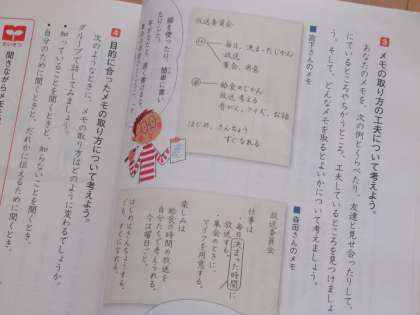 3 メモの取り方の工夫について考えよう。
あなたのメモを、次の例とくらべたり、友達と見せ合ったりして、
にているところやちがうところ、工夫しているところを見つけましょ
う。そして、どんなメモを取るとよいかについて考えましょう。
■宮下さんのメモ
放送委員会
毎日、決まったじかん
放送
集会、用意
給食のじかん
放送、考える
音がく、クイズ、お話
はじめ、きんちょう
すぐなれる
■森田さんのメモ
放送委員会
仕事は
・毎日決まった時間に
放送する。
・集会のときに、
マイクを用意する。
楽しみは
給食の時間の放送を
自分たちで考えられる。
今は曜日ごと。
はじめはきんちょうする。
でも、すぐになれる。
線を使ったり、簡単に書い
たりして、
4 目的に合ったメモの取り方について考えよう。
次のようなときに、メモの取り方はどのように変わるでしょうか。
グループで話してみましょう。
・知っていることを聞くときと、知らないことを聞くとき。
・自分のために聞くときと、だれかに伝えるために聞くとき。
たいせつ